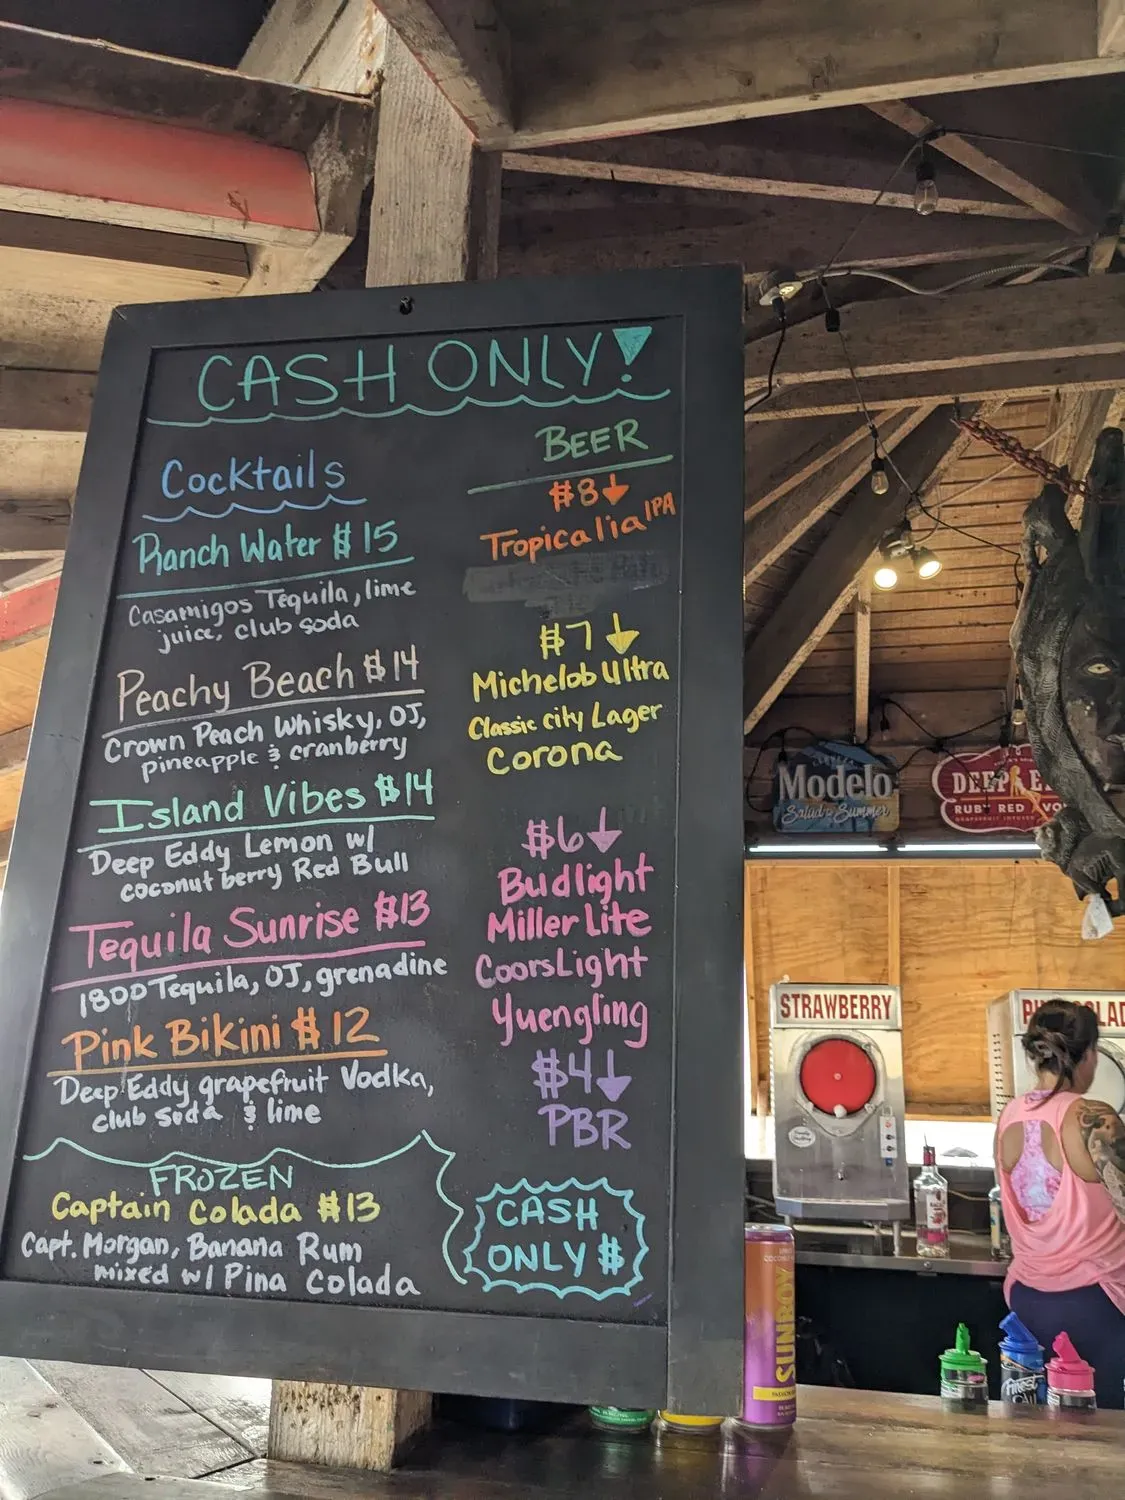 CASH ONLY!
Cocktails
Ranch Water $15
Casamigos Tequila, lime
juice, club soda
Peachy Beach $14
Crown Peach Whisky, OJ,
pineapple & cranberry
Island Vibes $14
Deep Eddy Lemon w/
coconut berry Red Bull
Tequila Sunrise $13
1800 Tequila, OJ, grenadine
Pink Bikini $12
Deep Eddy grapefruit Vodka,
club soda & lime
FROZEN
Captain Colada $13
Capt. Morgan, Banana Rum
mixed w/ Pina Colada
BEER
$8↓
Tropicalia IPA
$7↓
Michelob Ultra
Classic city Lager
Corona
$6↓
Budlight
Miller Lite
CoorsLight
Yuengling
$4↓
PBR
CASH
ONLY $
Modelo
Salud to Summer
DEEP E
RUBY RED VO
STRAWBERRY
SUNBOY